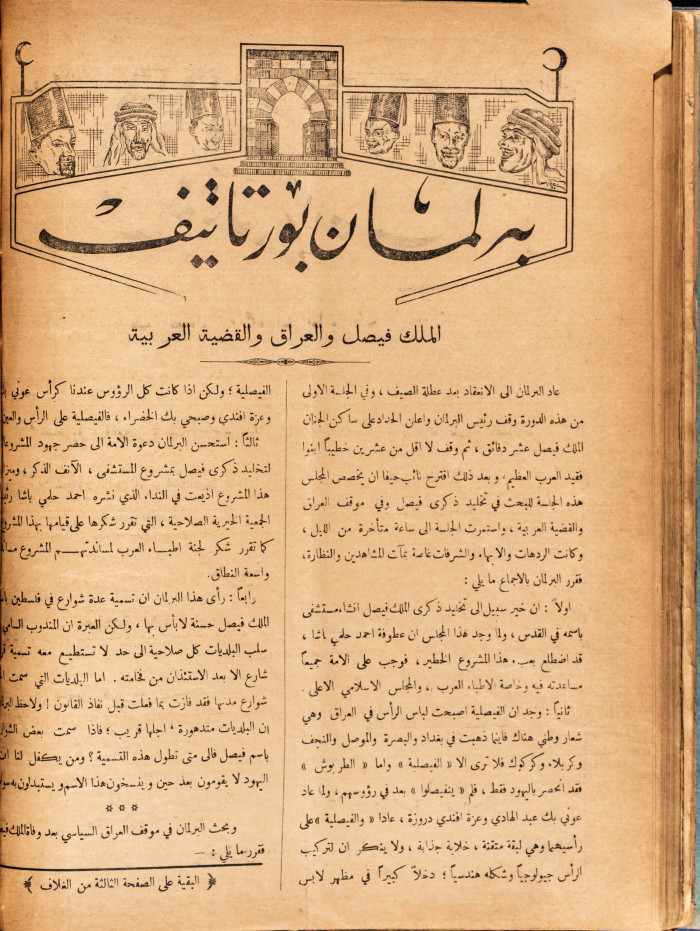 برلمان بورتاتيف
الملك فيصل والعراق والقضية العربية
عاد البرلمان الى الانعقاد بعد عطلة الصيف ، وفي الجلسة الاولى
من هذه الدورة وقف رئيس البرلمان واعلن الحداد على ساكن الجنان
الملك فيصل عشر دقائق ، ثم وقف لا اقل من عشرين خطيباً ابنوا
فقيد العرب العظيم . وبعد ذلك اقترح نائب حيفا ان يخصص المجلس
هذه الجلسة للبحث في تخليد ذكرى فيصل وفي موقف العراق
والقضية العربية ، واستمرت الجلسة الى ساعة متأخرة من الليل ،
وكانت الردهات والابهاء والشرفات غاصة بمآت المشاهدين والنظارة ،
فقرر البرلمان بالاجماع ما يلي :
اولاً : ان خير سبيل الى تخليد ذكرى الملك فيصل انشاء مستشفى
باسمه في القدس ، ولما وجد هذا المجلس ان عطوفة احمد حلمي باشا ،
قد اضطلع بعبء هذا المشروع الخطير ، فوجب على الامة جميعاً
مساعدته فيه وخاصة الاطباء العرب ، والمجلس الاسلامي الاعلى .
ثانياً : وجد ان الفيصلية اصبحت لباس الرأس في العراق وهي
شعار وطني هناك فاينما ذهبت في بغداد والبصرة والموصل والنجف
وكربلاء وكركوك فلا ترى الا « الفيصلية » واما « الطربوش »
فقد انحصر باليهود فقط ، فلم « ينفيصلوا » بعد في رؤوسهم ، ولما عاد
عوني بك عبد الهادي وعزة افندي دروزة ، عادا « والفيصلية » على
رأسيهما وهي لبقة متقنة ، خلابة جذابة ، ولا ينكر ان لتركيب
الرأس جيولوجياً وشكله هندسياً ؛ دخلاً كبيراً في مظهر لابس
الفيصلية ؛ ولكن اذا كانت كل الرؤوس عندنا كرأس عوني
وعزة افندي وصبحي بك الخضراء ، فالفيصلية على الرأس والعين
ثالثاً : استحسن البرلمان دعوة الامة الى حصر جهود
لتخليد ذكرى فيصل بمشروع المستشفى ، الآنف الذكر ،
هذا المشروع اذيعت في النداء الذي نشره احمد حلمي باشا
الجمعية الخيرية الصلاحية ، التي تقرر شكرها على قيامها بهذا
كما تقرر شكر لجنة اطباء العرب لمساندتهم المشروع
واسعة النطاق.
رابعاً : رأى هذا البرلمان ان تسمية عدة شوارع في فلسطين
الملك فيصل حسنة لا بأس بها ، ولكن العبرة ان المندوب السامي
سلب البلديات كل صلاحية الى حد لا تستطيع معه تسمية
شارع الا بعد الاستئذان من فخامته . اما البلديات التي سمت
شوارع مدنها فقد فازت بما فعلت قبل نفاذ القانون ! ولاحظ
ان البلديات متدهورة ، اجلها قريب ؛ فاذا سمت بعض
باسم فيصل فالى متى تطول هذه التسمية ؟ ومن يكفل لنا ان
اليهود لا يقومون بعد حين وينسخون هذا الاسم ويستبدلون به
* * *
وبحث البرلمان في موقف العراق السياسي بعد وفاة الملك
فقرر ما يلي : —
﴿ البقية على الصفحة الثالثة من الغلاف ﴾